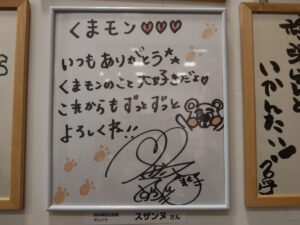 くまモン♡♡♡
いつもありがとう
くまモンのこと大好きだよ♡
これからもずっとずっと
よろしくね!!
スザンヌ さん
いかんたい